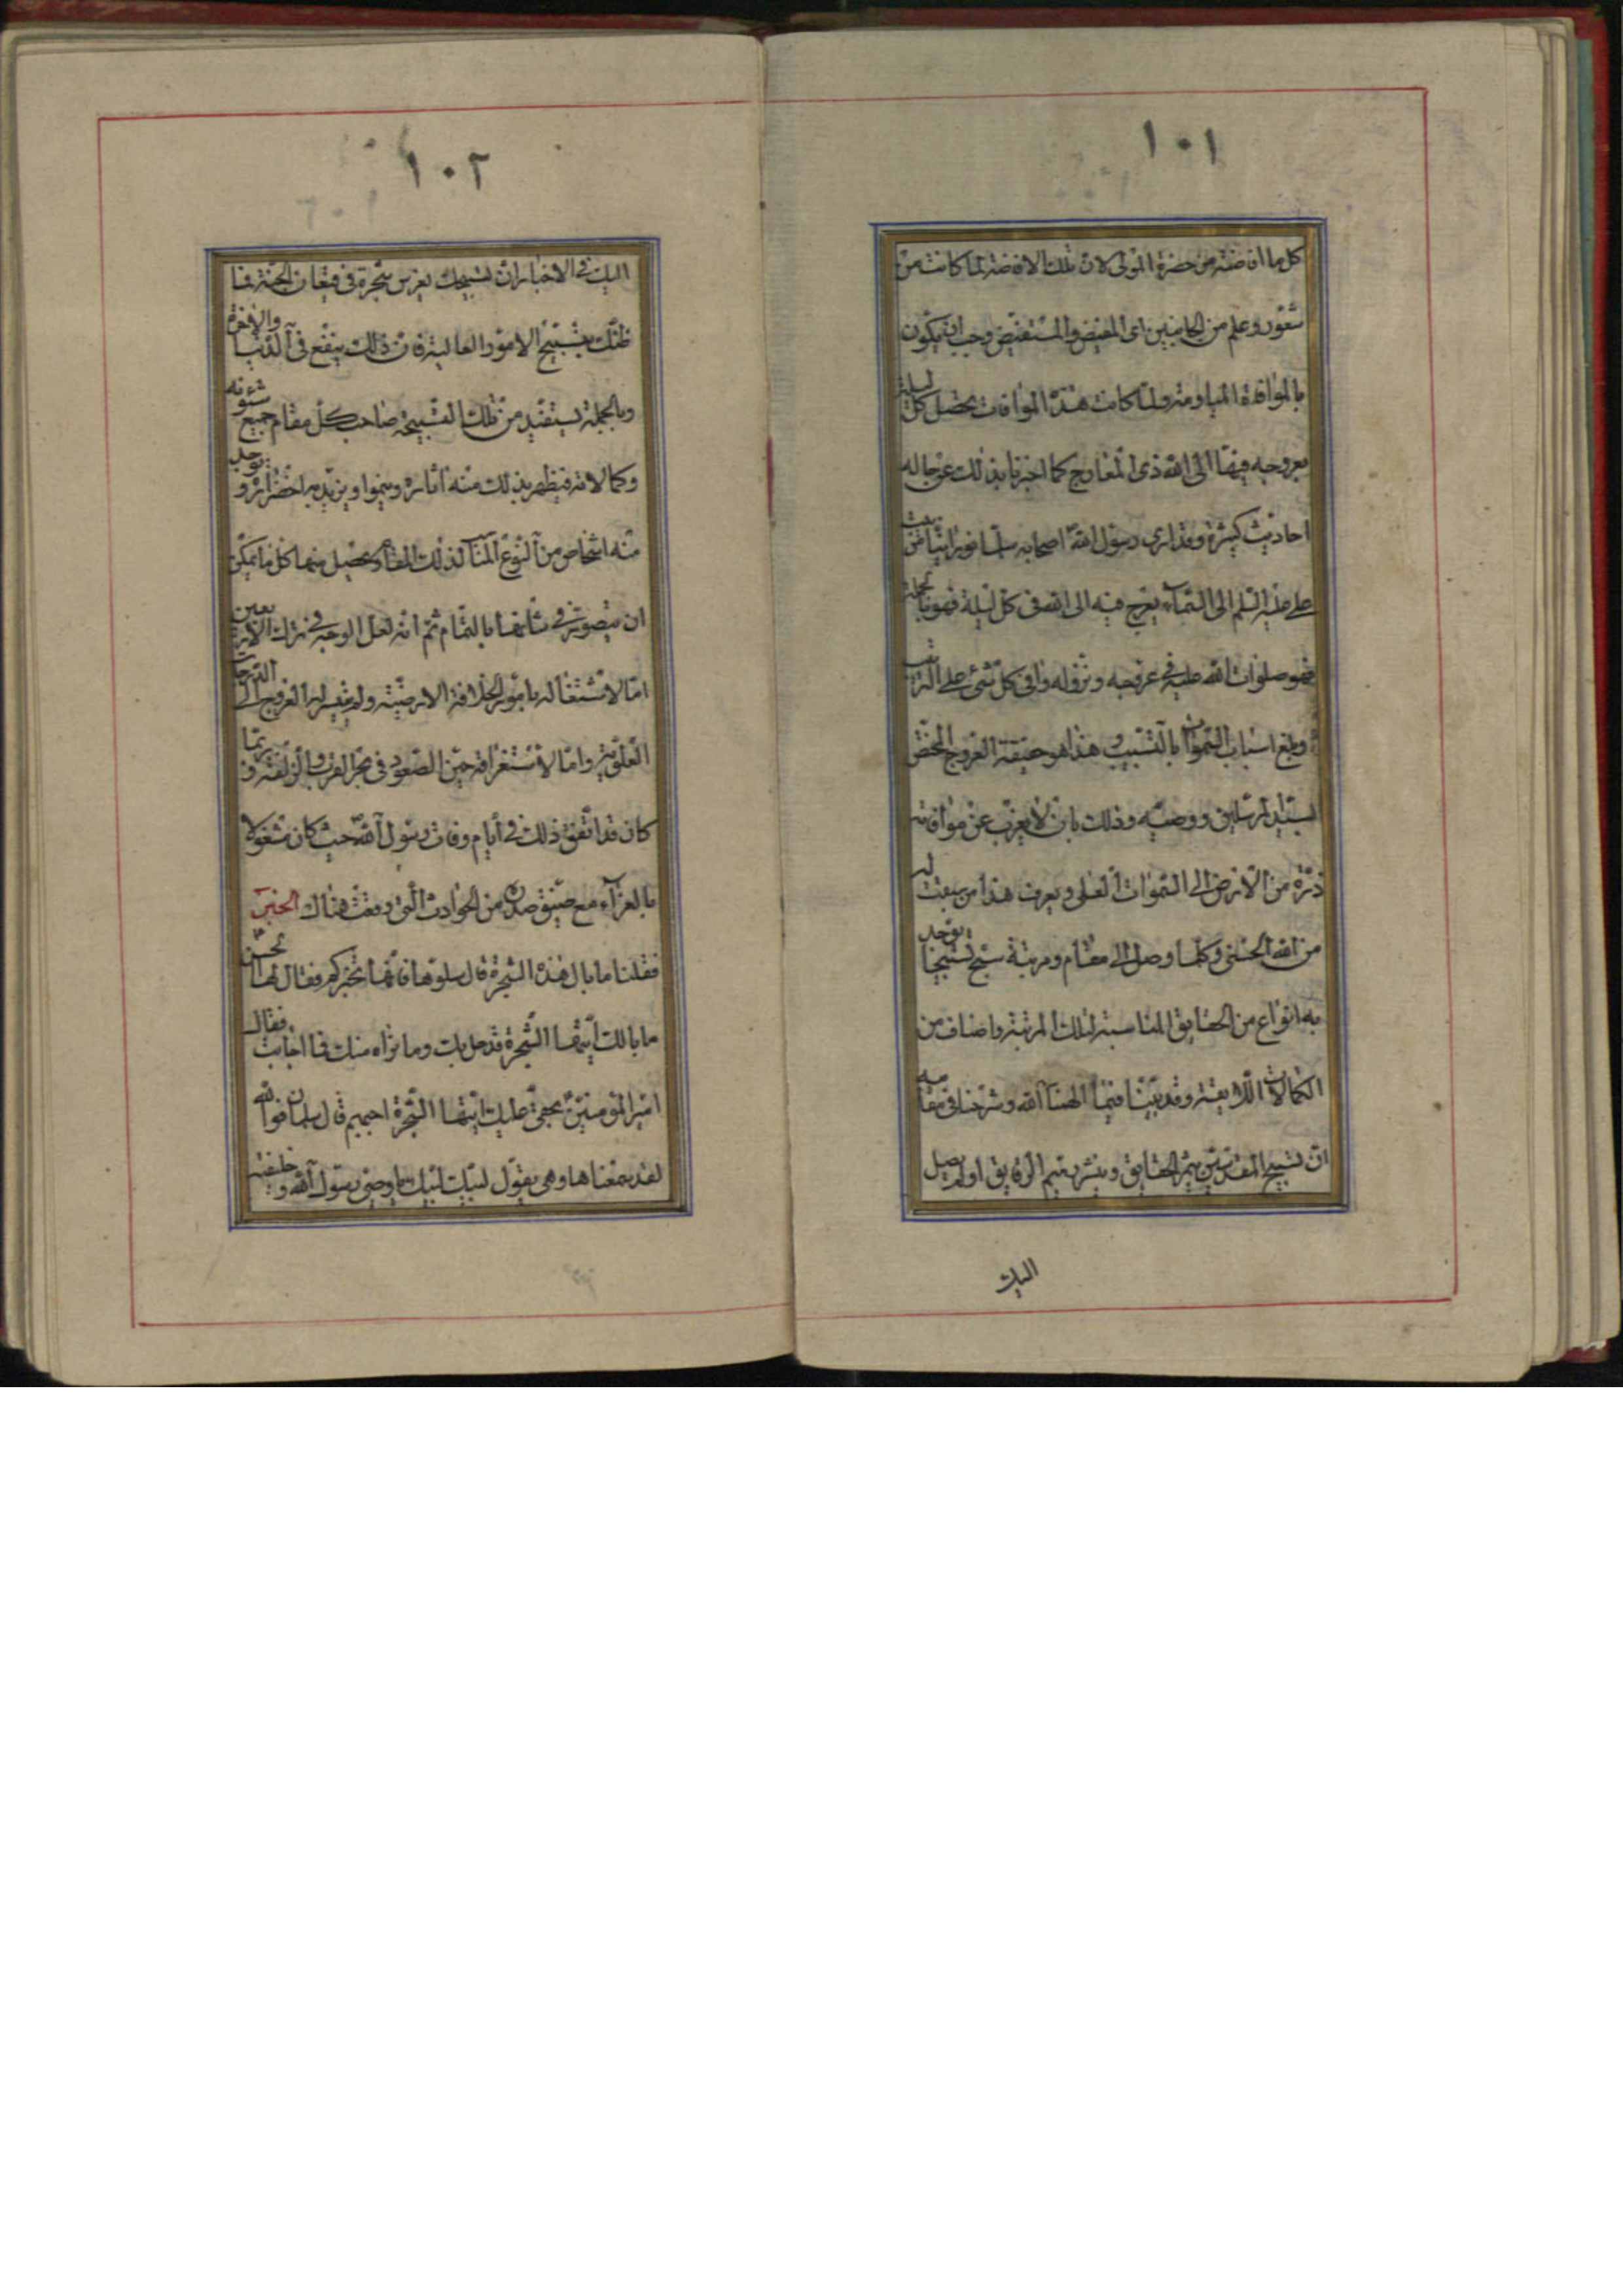 ١٠١
كل ما افاضته من حضرة المولى لان تلك الافاضة لما كانت من
شعور وعلم من الجانبين اى المفيض والمستفيض وجب ان يكون
بالموافاة ولما كانت هذه الموافات يحصل كل ليلة
بعروجه فيها الى الله ذى المعارج كما اخبرنا بذلك عن حاله
احاديث كثيرة وقد ارى رسول الله اصحابه
على هيئة السلم الى السماء يعرج فيه الى الله فى كل ليلة فهو بالجملة
فهو صلوات الله عليه فى عروجه ونزوله وافى كل شئ على الترتيب
وبلغ اسباب السموات بالتسبيب وهذا هو حقيقة العروج المختص
لسيد المرسلين ووصيه وذلك بان لا يعزب عن موافاته
ذرة من الارض الى السموات العلى ويعرف هذا من سبقت له
من الله الحسنى وكلما وصل الى مقام ومرتبة سبح تسبيحا يوجد
به انواع من الحقايق المناسبة لتلك المرتبة واصناف من
الكمالات اللايقة وقد بيّنا فيما الهمنا الله وشرحنا فى مقامه
انّ تسبيح المقدسين يثمر الحقايق وينشر بهم الرقايق اولم يصل
اليك
١٠٢
اليك فى الاخبار ان تسبيحك يغرس شجرة فى قيعان الجنة فما
ظنّك بتسبيح الامور العالية فان ذلك ينفع فى الدنيا والاخرة
وبالجملة يستفيد من تلك التسبيحة صاحب كل مقام جميع شئونه
وكمالاته فيظهر بذلك منه اثاره وينموا ويزيد به اخضراره ويوجد
منه اشخاص من النوع المناسب لذلك المقام ويحصل منها كل ما يمكن
ان يتصور فى شانها بالتمام ثم انه لعل الوجه فى ترك الاربعين
امّا لاشتغاله بامور الخلافة الارضيّة ولم يتيسر له العروج الى الدرجات
العلويّة وامّا لاستغراقه حين الصعود فى بحر القرب والزلفة وربما
كان قد اتفق ذلك فى أيام وفات رسول الله حيث كان مشغولا
بالعزآء مع ضيق صدره من الحوادث التى وقعت هناك الخبر
فقلنا ما بال هذه الشجرة قال سلوها فانّها تخبركم فقال لها الحسن
ما بالك ايّتها الشجرة قد حل بك وما نراه منك فما اجابت فقال
امير المؤمنين بحقى عليك ايّتها الشجرة اجيبيهم قال سلمان فوالله
لقد سمعناها وهى تقول لبيك لبيك يا وصى رسول الله وخليفته